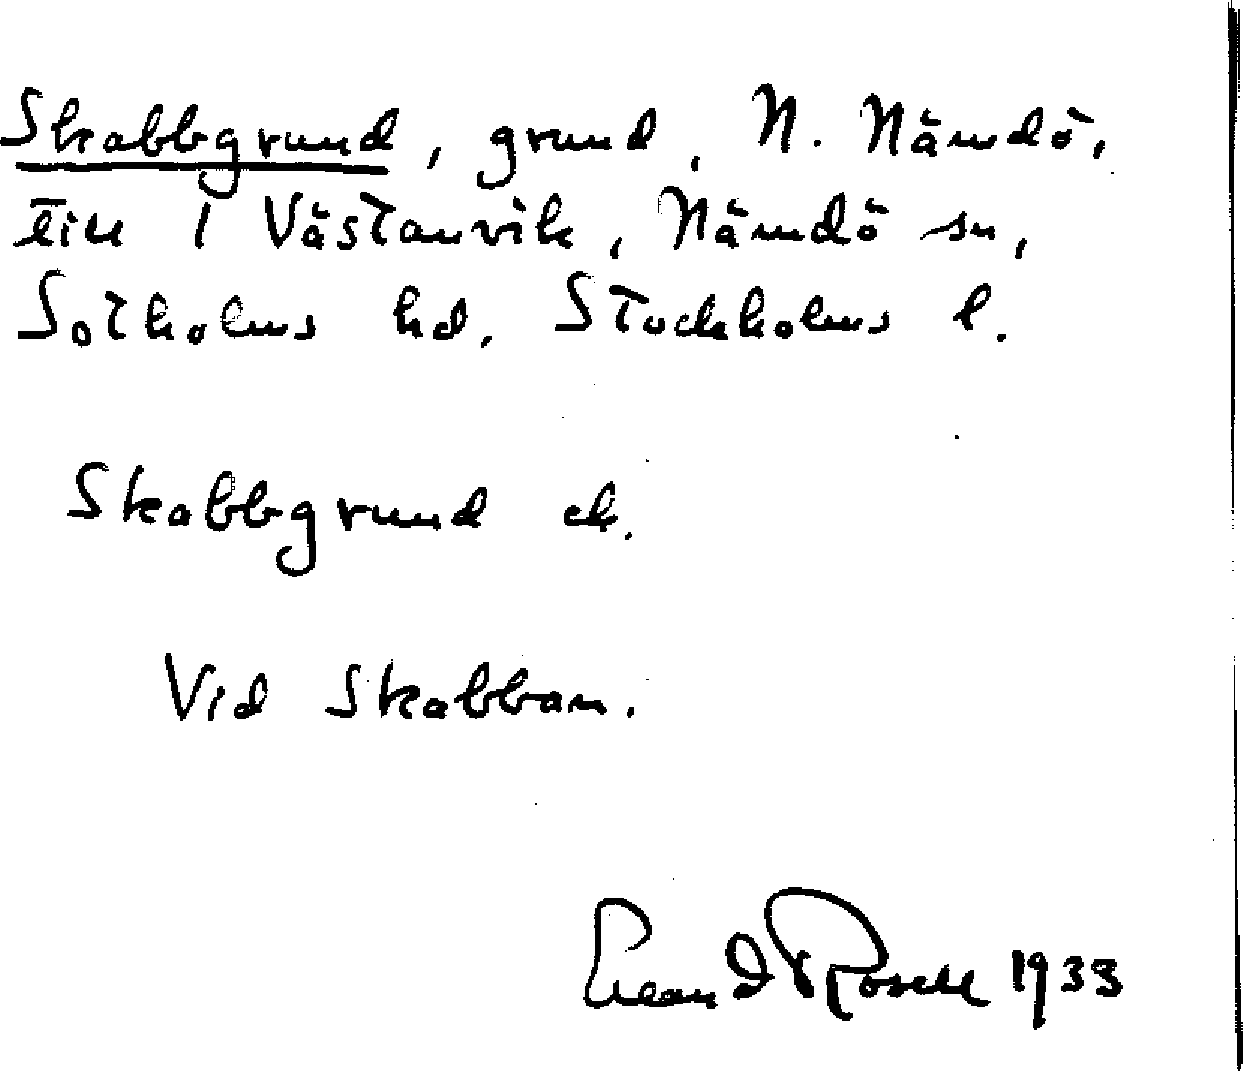 Skabbgrund, grund, N. Nämdö,
till 1 Västanvik, Nämdö sn,
Sotholms hd, Stockholms l.
Skabbgrund ck.
Vid Skabban.
Rosell 1933